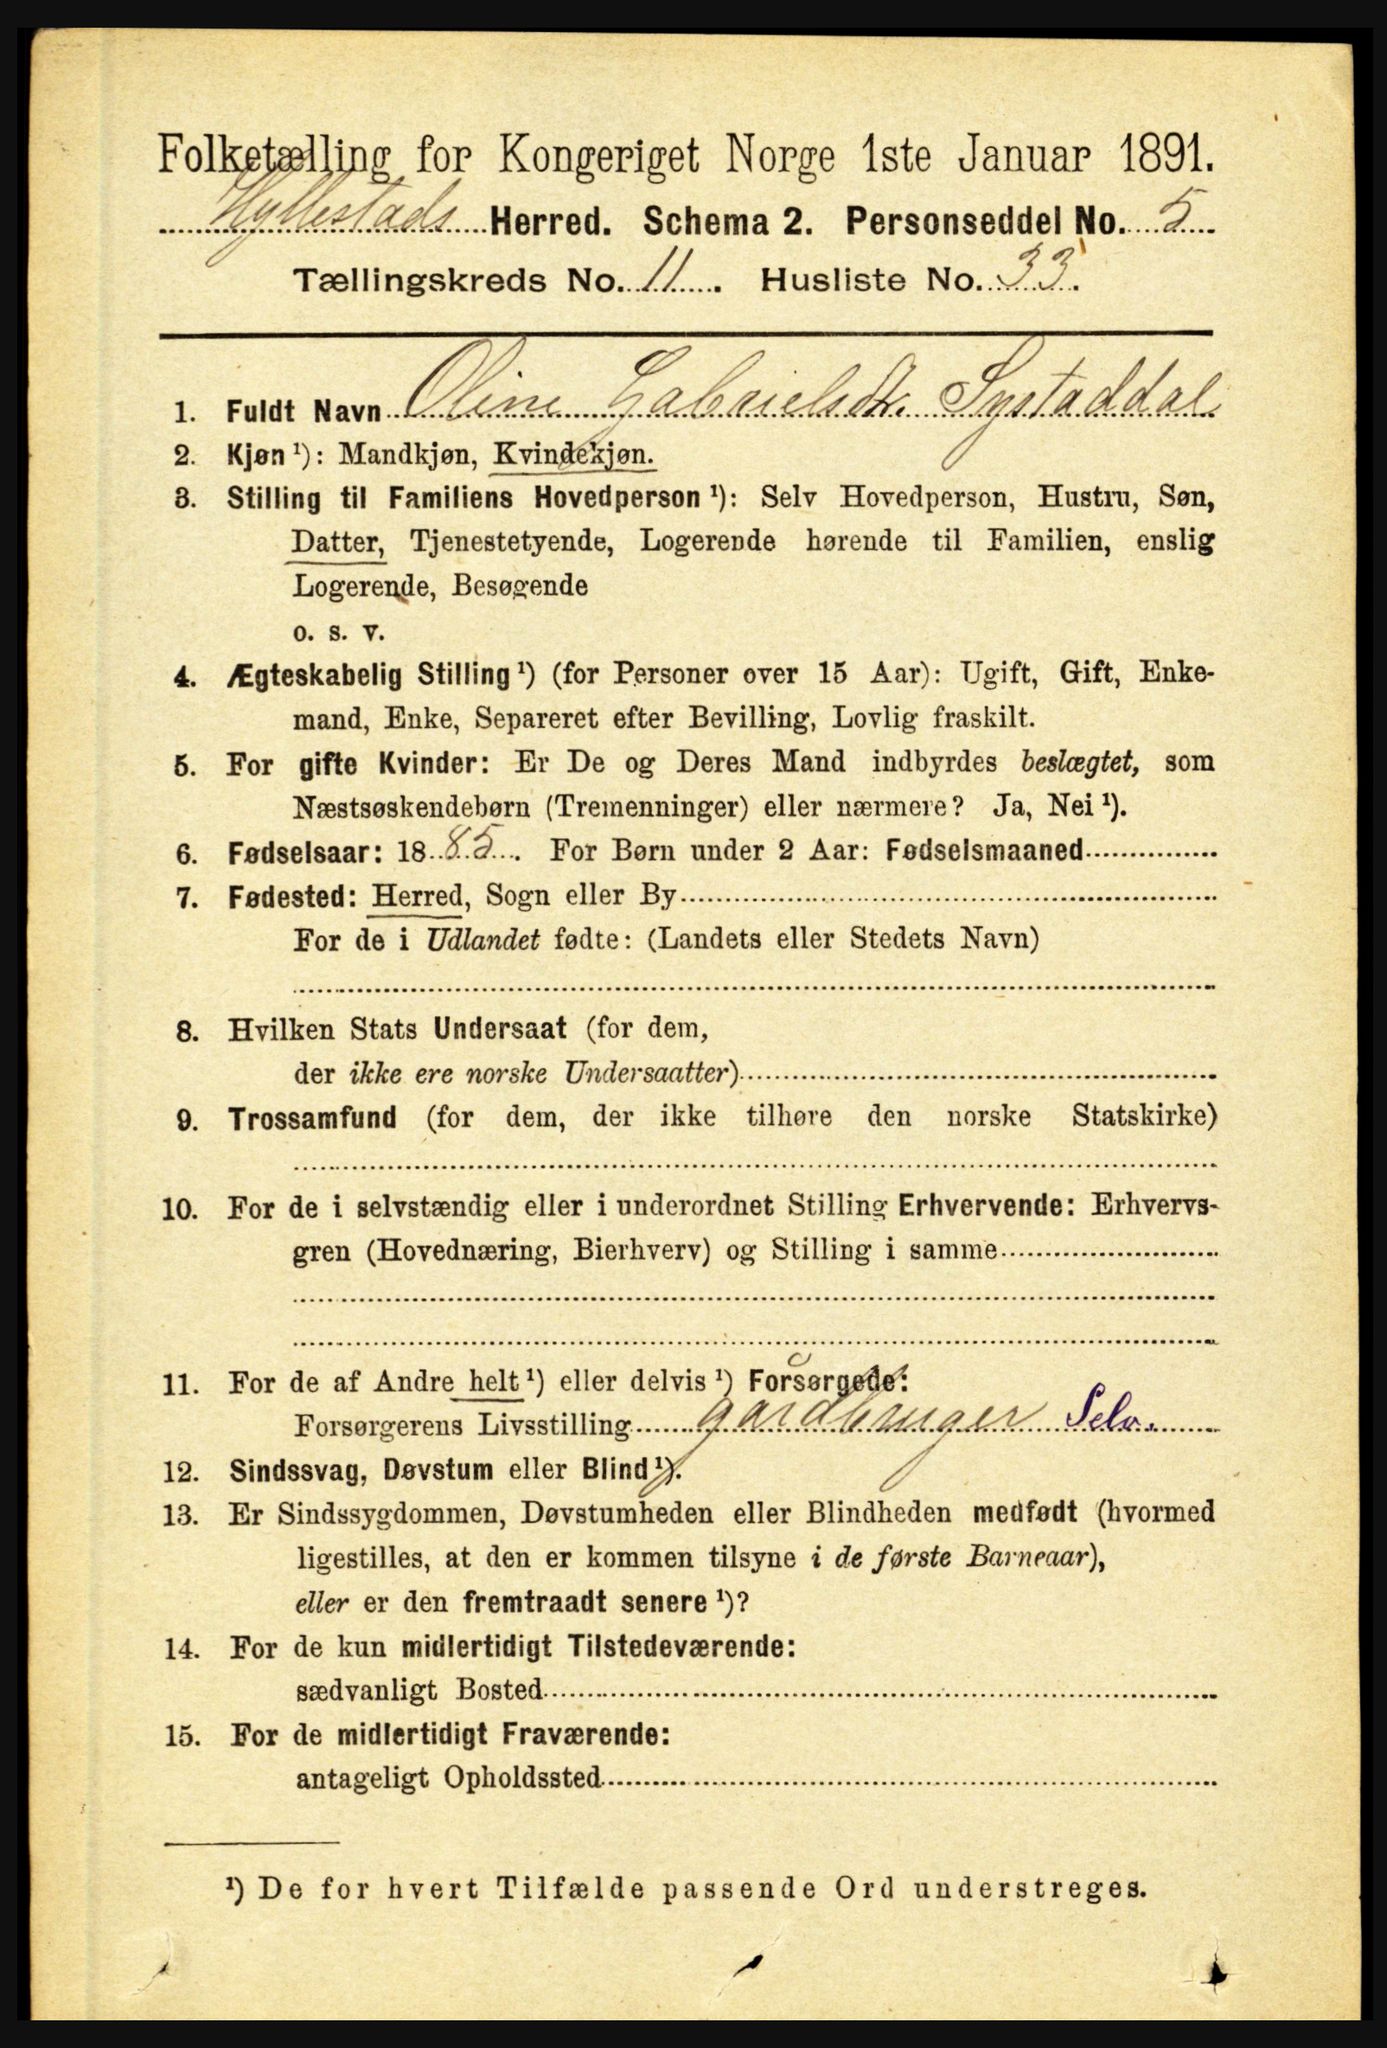 Folketælling for Kongeriget Norge 1ste Januar 1891.
Hyllestads Herred. Schema 2. Personseddel No. 5
Tællingskreds No. 11. Husliste No. 33.
1. Fuldt Navn Oline Gabrielsdtr. Systaddal
2. Kjøn ¹): Mandkjøn, Kvindekjøn.
3. Stilling til Familiens Hovedperson ¹): Selv Hovedperson, Hustru, Søn,
Datter, Tjenestetyende, Logerende hørende til Familien, enslig
Logerende, Besøgende
o. s. v.
4. Ægteskabelig Stilling ¹) (for Personer over 15 Aar): Ugift, Gift, Enke-
mand, Enke, Separeret efter Bevilling, Lovlig fraskilt.
5. For gifte Kvinder: Er De og Deres Mand indbyrdes beslægtet, som
Næstsøskendebørn (Tremenninger) eller nærmere? Ja, Nei ¹).
6. Fødselsaar: 1885. For Børn under 2 Aar: Fødselsmaaned
7. Fødested: Herred, Sogn eller By
For de i Udlandet fødte: (Landets eller Stedets Navn)
8. Hvilken Stats Undersaat (for dem,
der ikke ere norske Undersaatter)
9. Trossamfund (for dem, der ikke tilhøre den norske Statskirke)
10. For de i selvstændig eller i underordnet Stilling Erhvervende: Erhvervs-
gren (Hovednæring, Bierhverv) og Stilling i samme
11. For de af Andre helt ¹) eller delvis ¹) Forsørgede:
Forsørgerens Livsstilling gardbruger Selv.
12. Sindssvag, Døvstum eller Blind ¹).
13. Er Sindssygdommen, Døvstumheden eller Blindheden medfødt (hvormed
ligestilles, at den er kommen tilsyne i de første Barneaar),
eller er den fremtraadt senere ¹)?
14. For de kun midlertidigt Tilstedeværende:
sædvanligt Bosted
15. For de midlertidigt Fraværende:
antageligt Opholdssted
¹) De for hvert Tilfælde passende Ord understreges.